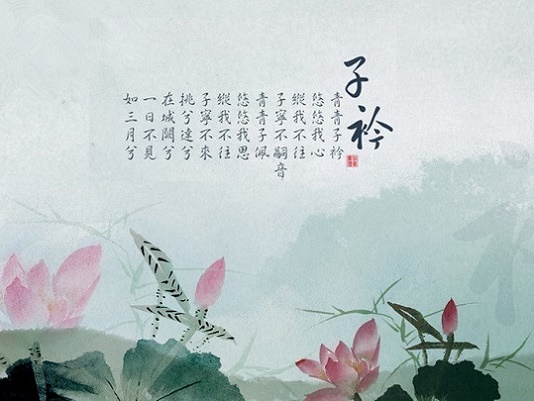 子衿
青青子衿
悠悠我心
縱我不往
子寧不嗣音
青青子佩
悠悠我思
縱我不往
子寧不來
挑兮達兮
在城闕兮
一日不見
如三月兮